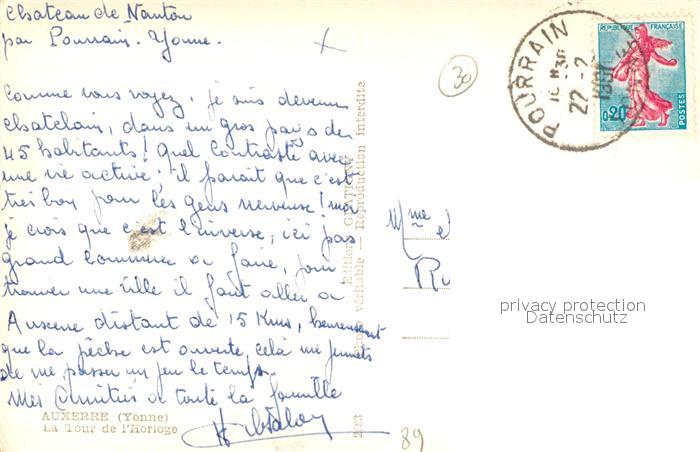 Chateau de Nantou
par Pourrain. Yonne.
Comme vous voyez, je suis devenu
chatelain, dans un gros pays de
45 habitants! Quel contraste avec
une vie active; il parait que c'est
très bon pour les gens nerveux! moi
je crois que c'est l'inverse, ici pas
grand commerce à faire, pour
trouver une ville il faut aller à
Auxerre distant de 15 Kms, heureusement
que la pêche est ouverte, celà me permets
de me passer un peu le temps.
Mes Amitiés à toute la famille
AUXERRE (Yonne)
La Tour de l'Horloge
2083
véritable — Reproduction interdite
30
89
POURRAIN
22-7
REPUBLIQUE FRANÇAISE
0,20
POSTES
Mme
Ru
privacy protection
Datenschutz